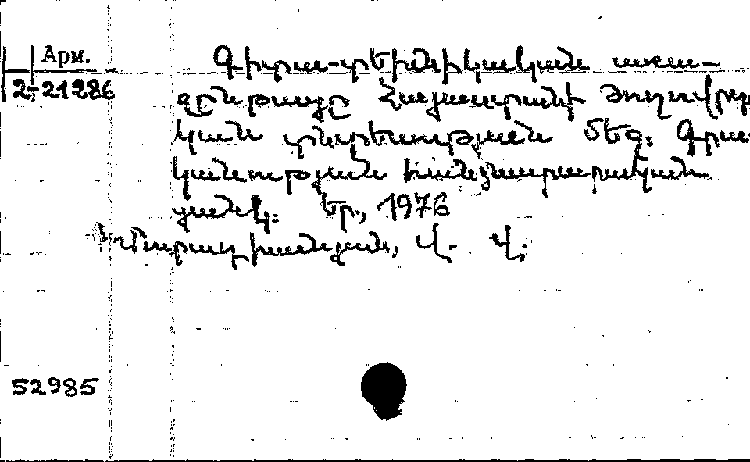 Арм.
2-21286
Գիտա-տեխնիկական առա-
ջընթացը Հայաստանի ժողովրդա
կան տնտեսության մեջ։ Գրա
կանության հանձնարարական
ցանկ։ Եր., 1976
վ.
52985